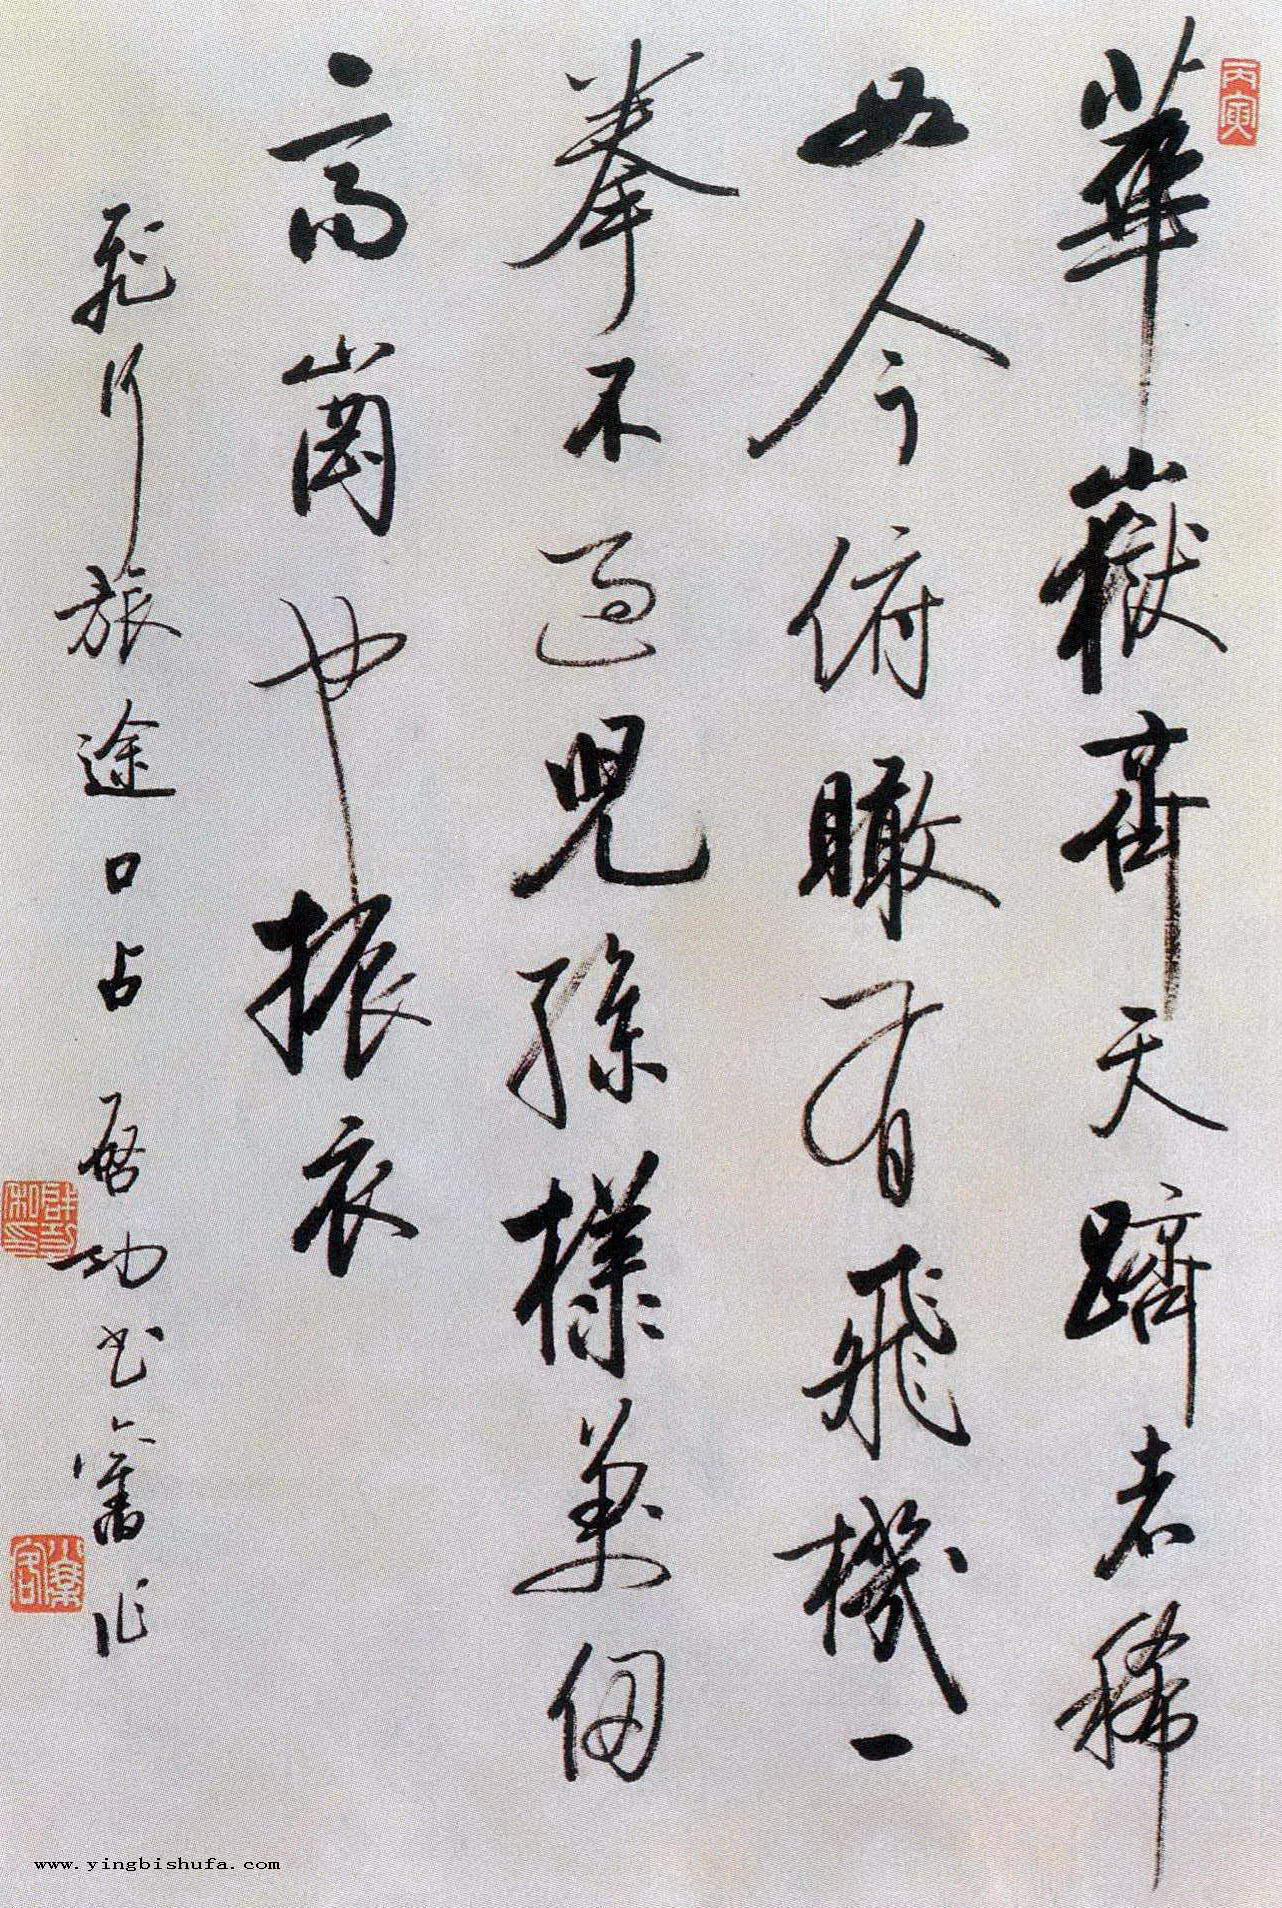 丙寅
華嶽齊天躋者稀
如今俯瞰有飛機一
拳不過兒孫樣萬仞
高崗也振衣
飛行旅途口占啓功書舊作
www.yingbishufa.com